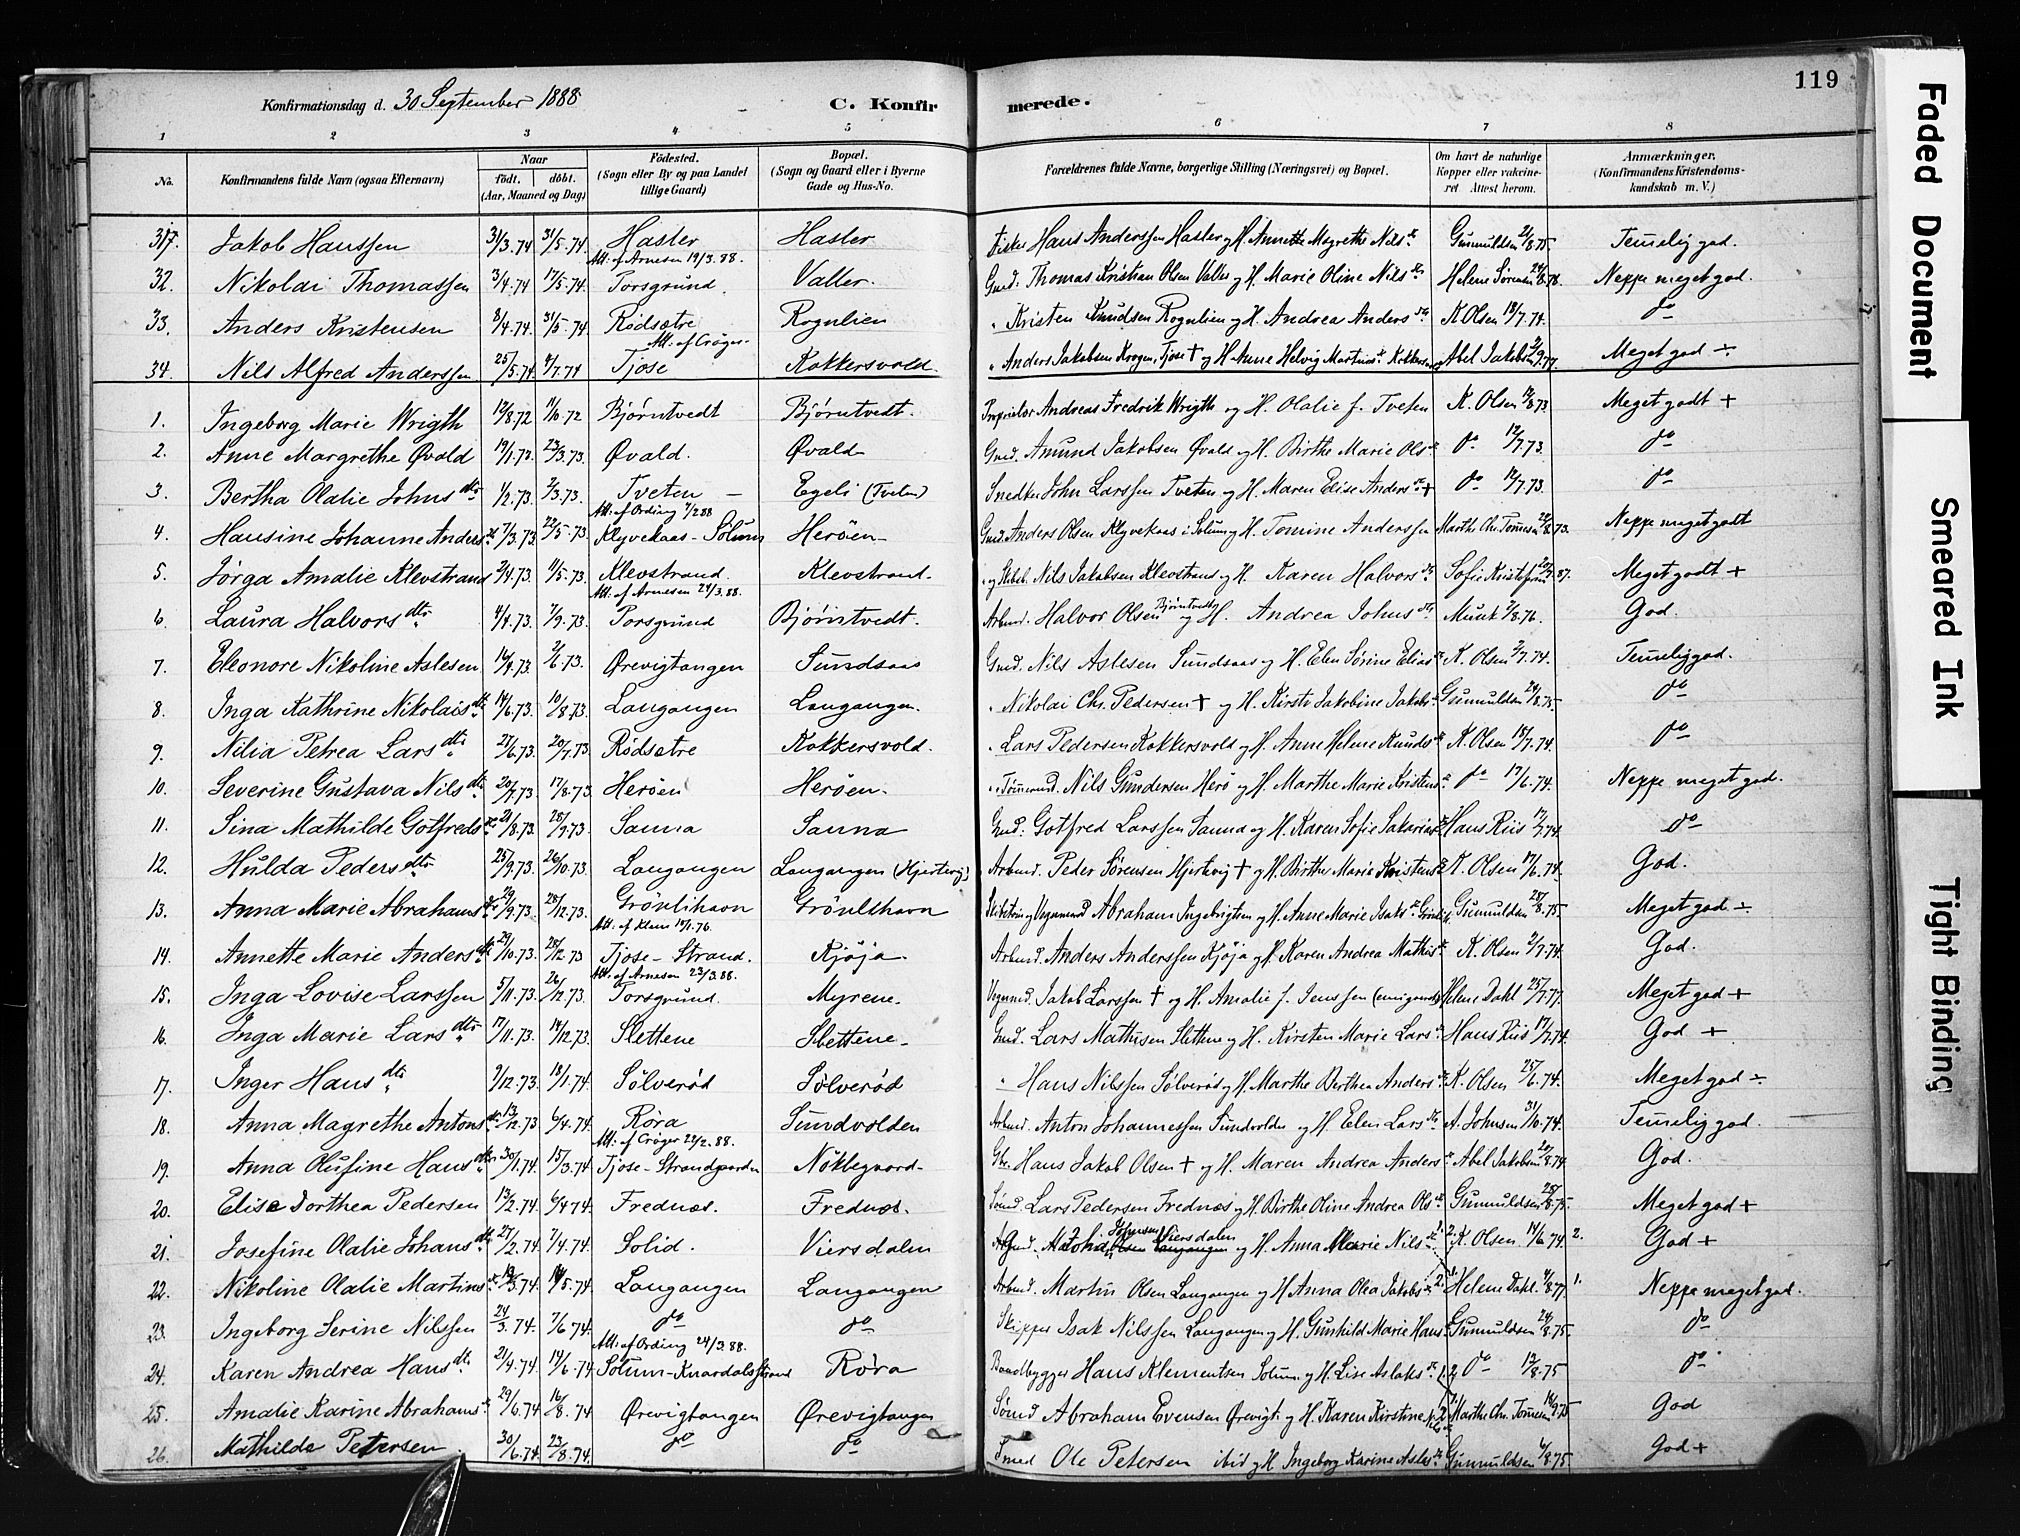 119
Konfirmationsdag d. 30 September 1888 C. Konfirmerede.
1 2 3 4 5 6 7 8
No. Konfirmandens fulde Navn (ogsaa Efternavn) Naar født. døbt. (Aar, Maaned og Dag) Födested. (Sogn eller By og paa Landet tillige Gaard) Bopæl. (Sogn og Gaard eller i Byerne Gade og Hus-No. Forældrenes fulde Navne, borgerlige Stilling (Næringsvei) og Bopæl. Om havt de naturlige Kopper eller vakcineret Attest herom. Anmærkninger. (Konfirmandens Kristendomskundskab m. V.)
31. Jakob Hanssen 31/3.74 31/5.74 Hasler Hasler Fisker Hans Anderssen Hasler og H. Annette Magrethe Nilsdtr. Gunnuldsen 21/8.75. Temelig god.
Att. af Arnesen 19/3.88.
32. Nikolai Thomassen 3/4.74 17/5.74. Porsgrund. Valler. Gmd. Thomas Kristian Olsen Valler og H. Marie Oline Nilsdtr. Helene Sørensen Neppe meget god.
33. Anders Kristensen 8/4.74. 31/5.74 Rödsætre Rognlien " Kristen Knudsen Rognlien og H. Andrea Andersdtr. K. Olsen 18/7.74. do
Att. af Crøger
34. Nils Alfred Anderssen 25/5.74. 4/7.74 Tjose Kokkersvold. " Anders Jakobsen Krogen, Tjose + og H. Anne Helvig Martinsdtr. Abel Jakobsen Meget god ÷
1. Ingeborg Marie Wrigth 12/8.72 11/10.72 Bjørntvedt Bjørntvedt. Proprietær Andreas Fredrik Wrigth og H. Olalie f. Tveten K. Olsen 12/8.73 Meget godt +
2. Anne Margrethe Øvald 19/1.73. 23/3.73. Øvald. Øvald Gmd. Amund Jakobsen Øvald og H. Birthe Marie Olsdtr. do 12/7.73. do
3. Bertha Olalie Johnsdtr. 1/2.73. 2/3.73. Tveten Egeli (Tveten) Snedker John Larssen Tveten og H. Maren Elise Andersdtr. + do 12/7.73. do
Att. af Ording 7/2 88
4. Hansine Johanne Andersdtr. 7/3.73. 22/5.73. Klyvekaas - Solum Herøen Gmd. Anders Olsen Klyvekaas i Solum og H. Tomine Anderssen Marthe Chr. Tommesen 24/8.73. Neppe meget godt
5. Jörga Amalie Klevstrand 2/4.73. 11/5.73. Klevstrand. Klevstrand. Nils Jakobsen Klevstrand og H. Karen Halvorsdtr. Sofie Kristofersen Meget godt +
Att. af Arnesen 24/3.88.
6. Laura Halvorsdtr. 4/4.73. 7/9.73. Porsgrund Bjørntvedt. Arbmd. Halvor Olsen Bjørntvedt og H. Andrea Johnsdtr. Munk 7/8.76. God.
7. Eleonore Nikoline Aslesen 16/4.73. 2/6.73. Ørevigtangen Sundsaas Gmd. Nils Aslesen Sundsaas og H. Elen Sørine Eliasdtr. K. Olsen 2/7.74. Temelig god.
8. Inga Kathrine Nikolaisdtr. 14/6.73. 10/8.73. Langangen Langangen. " Nikolai Chr. Pedersen + og H. Kirsti Jakobine Jakobsdtr. Gunnuldsen 24/8.75. do
9. Nilia Petrea Larsdtr. 27/6.73. 20/7.73. Rødsætre Kokkersvold. " Lars Pedersen Kokkersvold og H. Anne Helene Knudsdtr. K. Olsen 18/7.74. do
10. Severine Gustava Nilsdtr. 20/7.73. 17/8.73 Herøen Herøen. " Tømmermd. Nils Gundersen Herø og H. Marthe Marie Kristensdtr. do 17/6.74. Neppe meget god.
11. Sina Mathilde Gotfredsdtr. 21/8.73. 28/9.73. Sanna Sanna Gmd. Gotfred Larssen Sanna og H. Karen Sofie Sakariasdtr. Hans Riis 17/7.74. do
12. Hulda Pedersdtr. 25/9.73. 26/10.73. Langangen Langangen (Hjertvig) Arbmd. Peder Sørensen Hjertvig + og H. Birthe Marie Kristensdtr. K. Olsen 17/6.74 God.
13. Anna Marie Abrahamsdtr. 29/9.73. 28/12.73. Grönlihavn Grönlihavn Abraham Ingebrigtsen og H. Anne Marie Isaksdtr. Gunnuldsen 28/8.75. Meget god ÷
Att. af Klem 19/1.76.
14. Annette Marie Andersdtr. 29/10.73. 28/12.73 Tjose - Strand. Kjøja. Arbmd. Anders Anderssen Kjöja og H. Karen Andrea Mathisdtr. K. Olsen 2/7.74. God.
Att. af Arnesen 23/3.88.
15. Inga Lovise Larssen 5/11.73. 26/12.73. Porsgrund. Myrene. Jakob Larssen + og H. Amalie f. Jenssen Helene Dahl 25/7.77. Meget god +
16. Inga Marie Larsdtr. 17/11.73. 14/12.73. Slettene Slettene. Gmd. Lars Mathisen Slettene og H. Kirsten Marie Larsdtr. Hans Riis 17/7.74. God +
17. Inger Hansdtr. 7/12.73. 18/1.74. Sölveröd Sölveröd " Hans Nilssen Sölveröd og H. Marthe Berthea Andersdtr. K. Olsen 25/6.74. Meget god ÷
18. Anna Magrethe Antonsdtr. 13/12.73 6/4.74. Røra Sundvolden Arbmd. Anton Johannessen Sundvolden og H. Elen Larsdtr. A. Johnsen 31/10.74. Temelig god.
Att. af Crøger 22/2.88.
19. Anna Olufine Hansdtr. 30/1.74. 15/3.74. Tjose - Strandgaarden Nöklegaard. Hans Jakob Olsen + og H. Maren Andrea Andersdtr. Abel Jakobsen 20/8.74. God.
20. Elise Dorthea Pedersen 13/2.74. 6/4.74. Frednæs. Frednæs. Sömd. Lars Pedersen Frednæs og H. Birthe Oline Andrea Olsdtr. Gunnuldsen 28/8.75. Meget god +
21. Josefine Olalie Johansdtr. 27/2.74. 7/4.74. Solid. Viersdalen Johnsen Viersdalen og H. Anna Marie Nilsdtr. K. Olsen 14/6.74. 2. God +
22. Nikoline Olalie Martinsdtr. 12/3.74. 14/5.74. Langangen Langangen Arbmd. Martin Olsen Langangen og H. Anna Olea Jakobsdtr. Helene Dahl. 4/8.77. 1. Neppe meget god.
23. Ingeborg Serine Nilssen 24/3.74. 7/6.74. do do Skipper Isak Nilssen Langangen og H. Gunhild Marie Hansdtr. Gunnuldsen 24/8.75. do
Att. af Ording 24/3.88.
24. Karen Andrea Hansdtr. 21/4.74. 14/6.74. Solum - Knardalsstrand Røra Baadbygger Hans Klementsen Solum og H. Lise Aslaksdtr. do 12/8.75 do
25. Amalie Karine Abrahamsdtr. 29/6.74 16/8.74 Ørevigtangen Ørevigtangen Sömd Abraham Evensen Ørevigt. og H. Karen Kirstine Marthe Chr. Tommesen God
26. Mathilde Petersen 30/6.74. 23/8.74. do do Smed Ole Petersen ibid og H. Ingeborg Karine Aslesdtr. Gunnuldsen 6/8.75. God +
Faded Document
Smeared Ink
Tight Binding